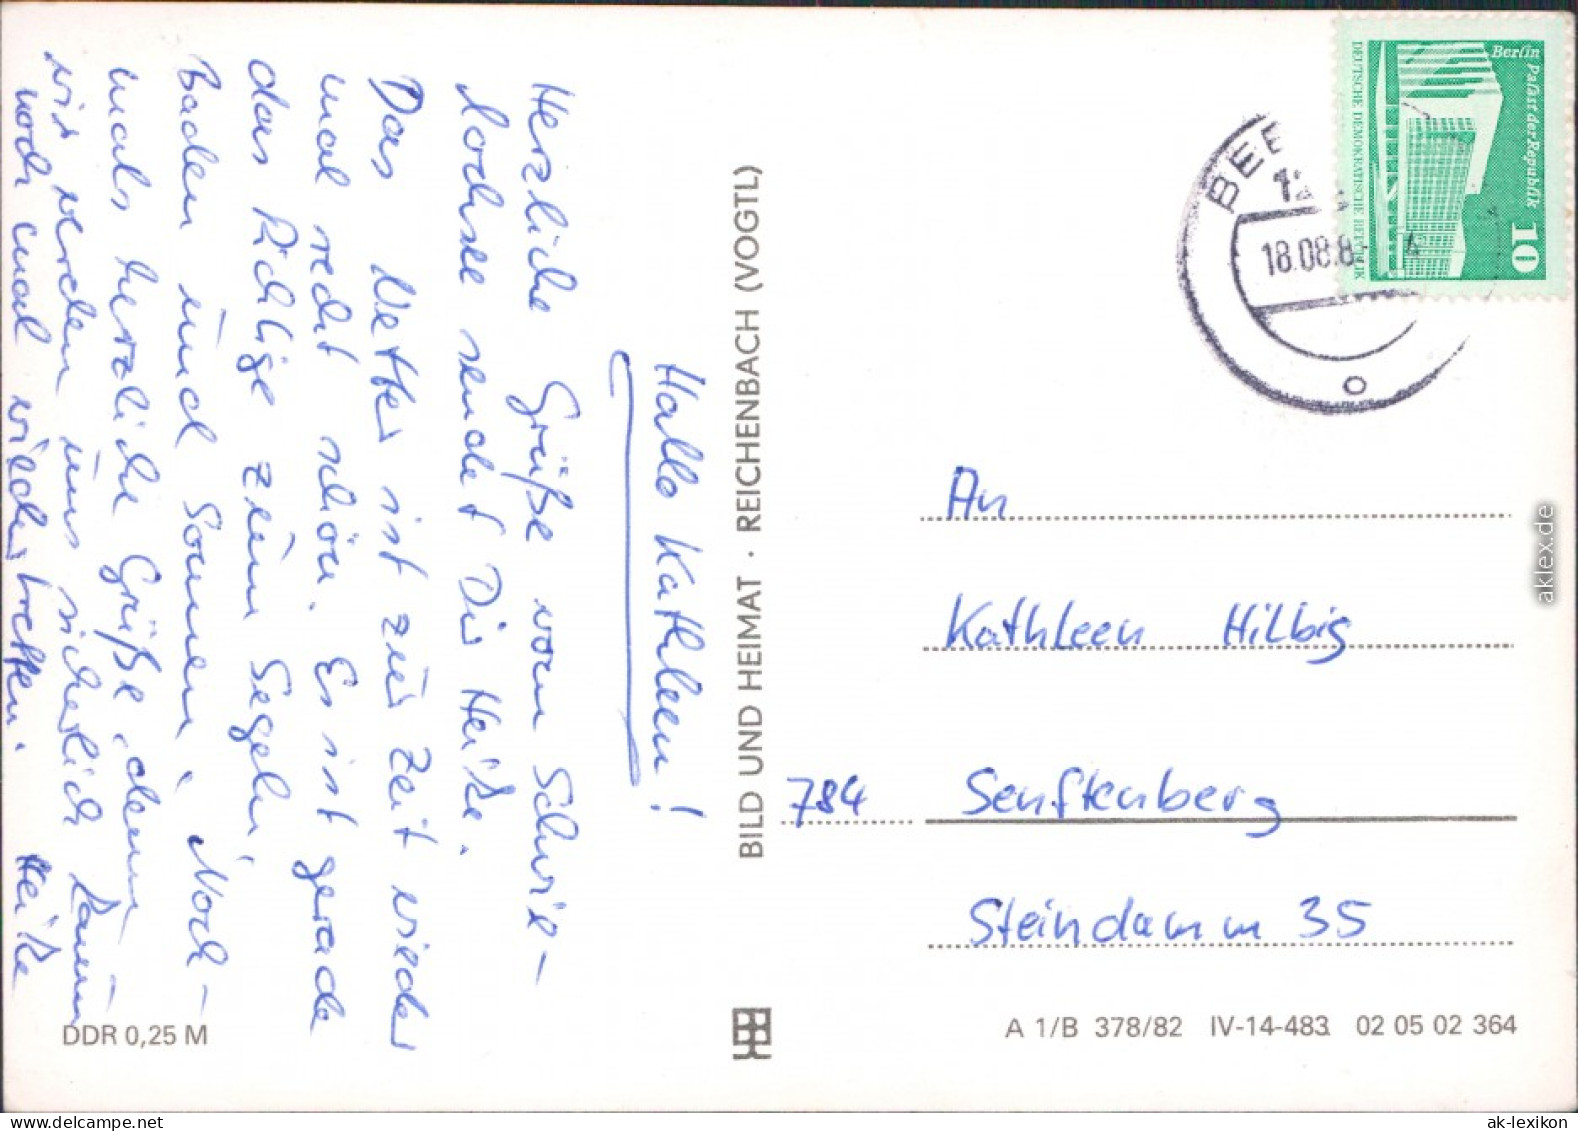 Hallo Kathleen!
Herzliche Grüße vom Schwie-
lochsee sendet Dir Heike.
Das Wetter ist zur Zeit wieder
mal recht schön. Es ist gerade
das Richtige zum Segeln,
Baden und Sonnen. Noch-
mals herzliche Grüße, denn
wir werden uns sicherlich kaum
noch mal wiedertreffen. Heike
DDR 0,25 M
BILD UND HEIMAT · REICHENBACH (VOGTL)
Berlin
Palast der Republik
10
DEUTSCHE DEMOKRATISCHE REPUBLIK
BEE
12
18.08.8
An
Kathleen Hilbig
784 Senftenberg
Steindamm 35
A 1/B 378/82 IV-14-483 02 05 02 364
aklex.de
ak-lexikon